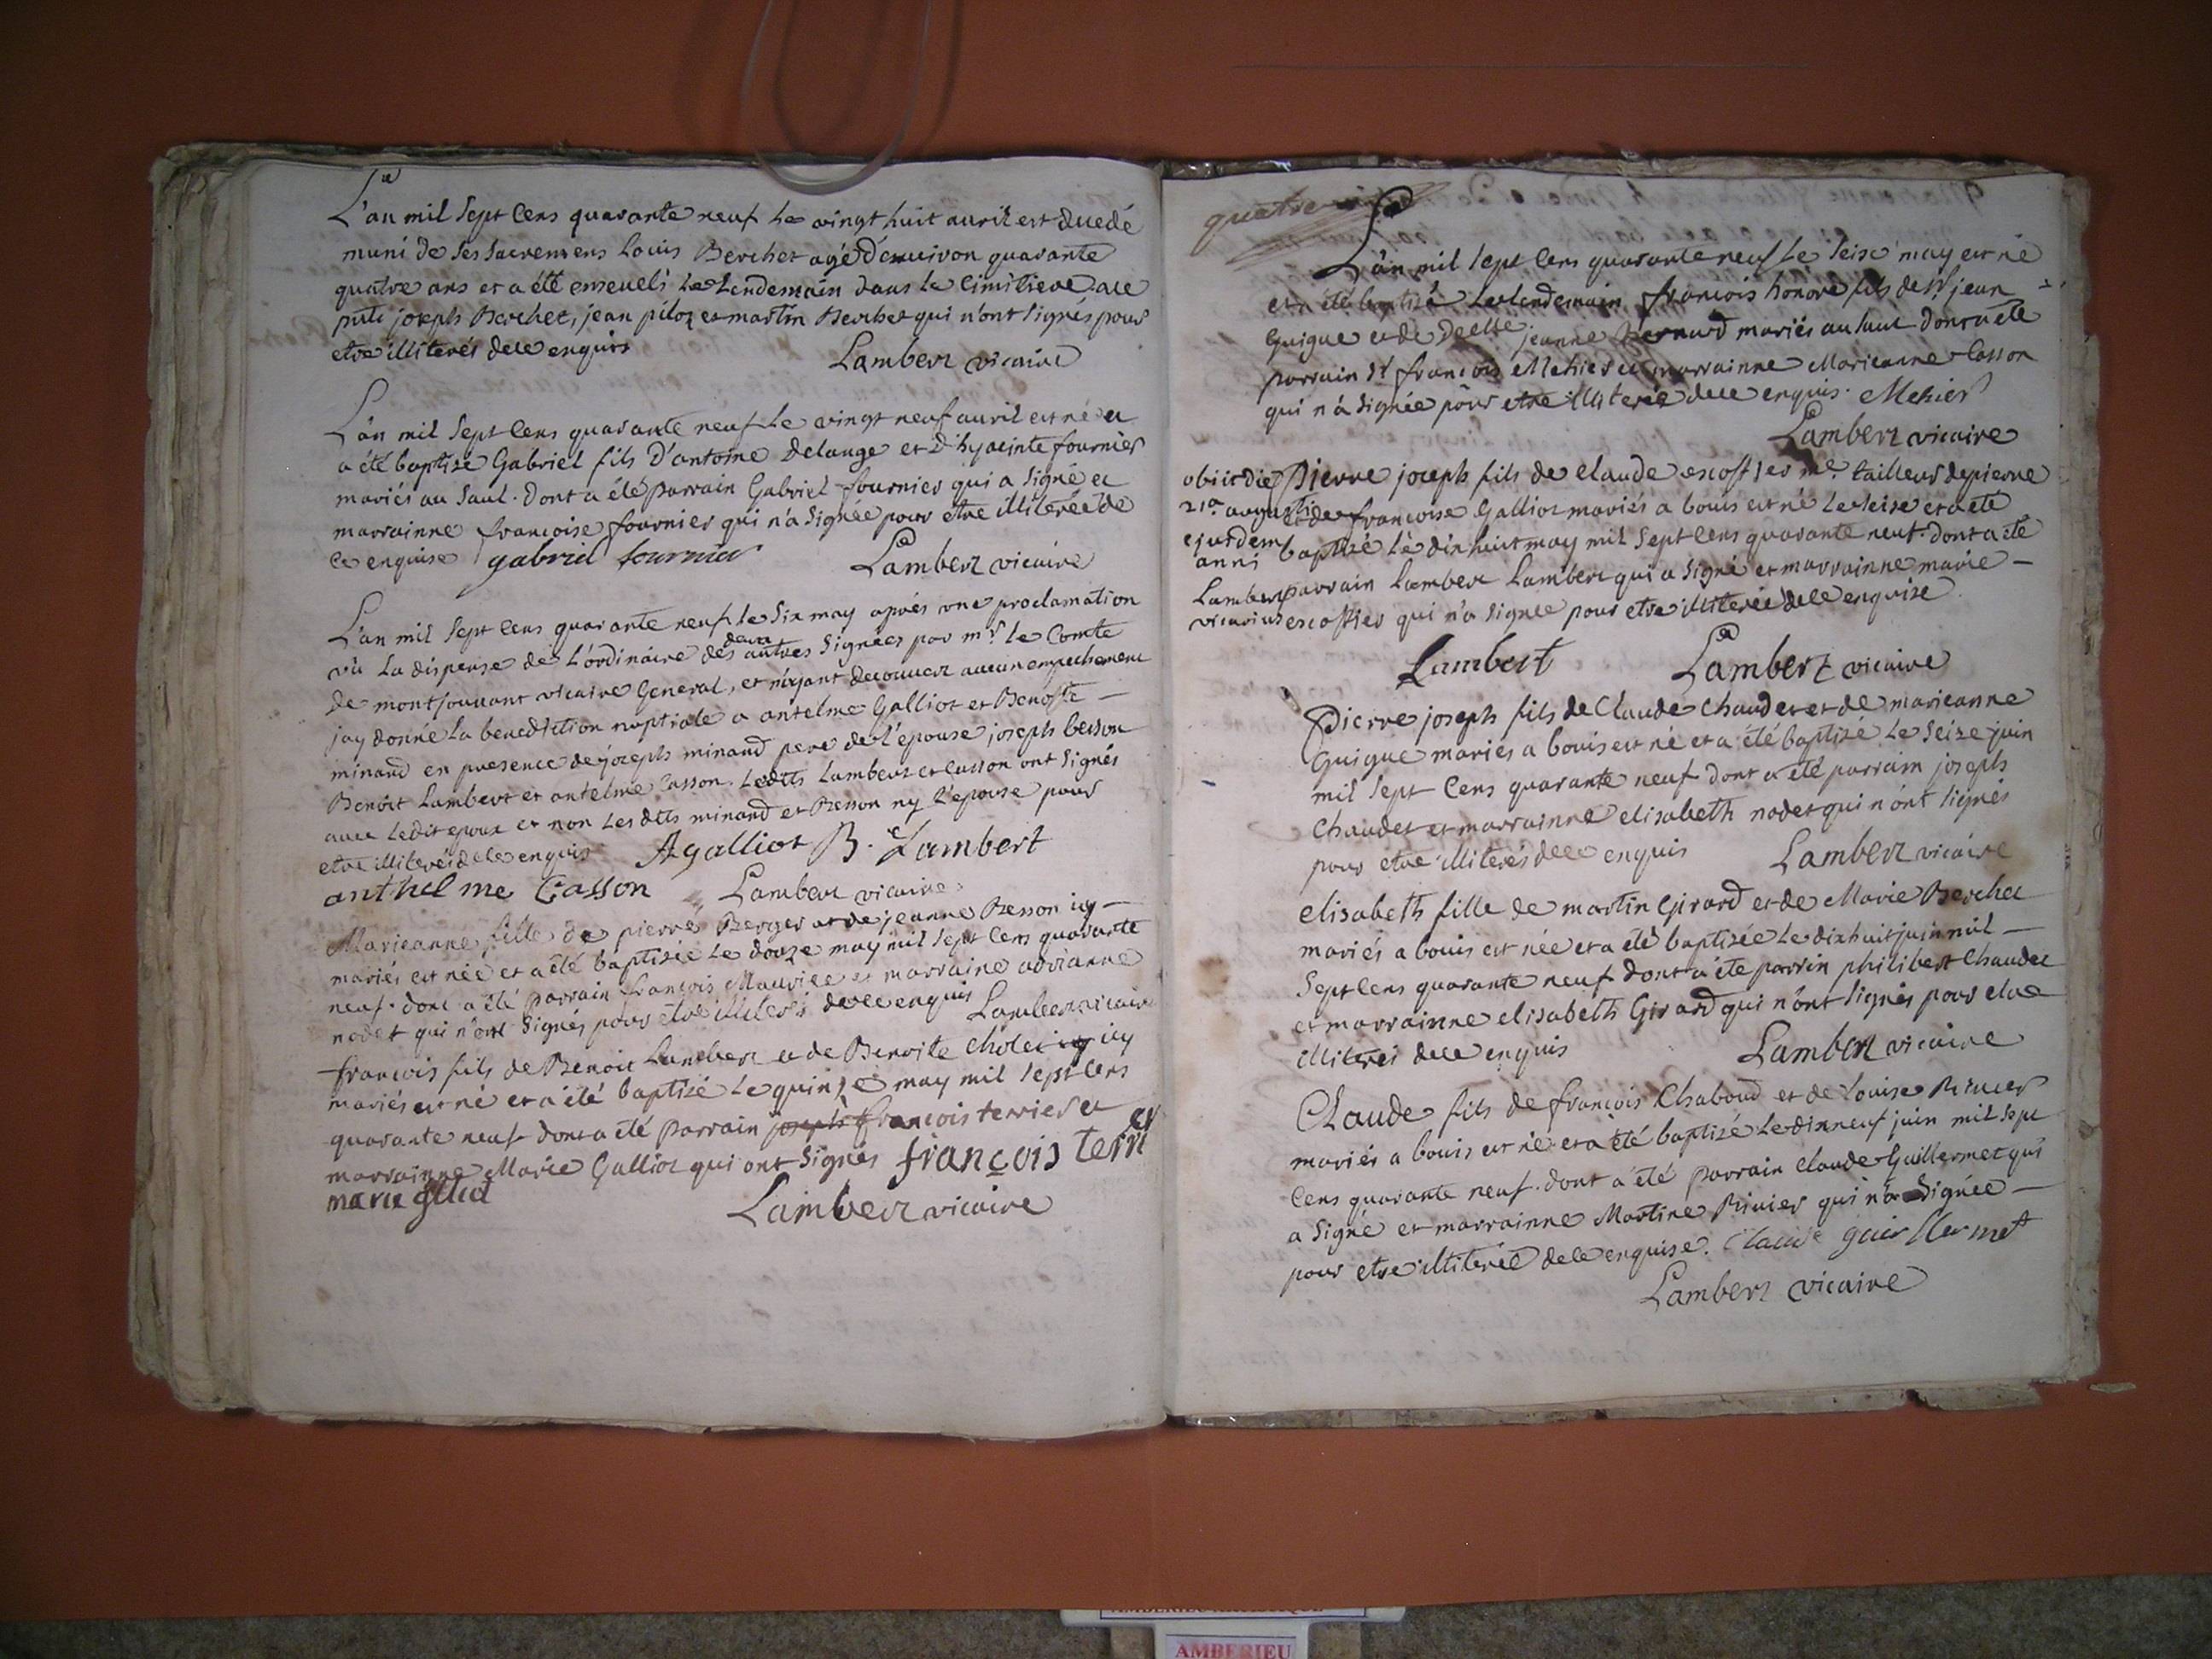 L'an mil sept cens quarante neuf le vingt huit auril est decedé
muni de ses sacremens Louis Berchet agé d'enuiron quarante
quatre ans et a été enseueli le lendemain dans le cimitiere
joseph Berchet, jean piloz et martin Berchet qui n'ont signés pour
etre illiterés de ce enquis
Lambert vicaire
L'an mil sept cens quarante neuf le vingt neuf auril est né et
a été baptisé Gabriel fils d'antoine Delange et d'hyacinte fournier
mariés au Saul. dont a été parrain Gabriel fournier qui a signé et
marrainne francoise fournier qui n'a signée pour etre illiterée de
ce enquise gabriel fournier
Lambert vicaire
L'an mil sept cens quarante neuf le six may aprés vne proclamation
vû la dispense de l'ordinaire des deux autres signées par mr le Comte
de montjouuant vicaire General, et n'ayant decouuert aucun empechement
jay donné la benediction nuptiale a antelme Galliot et Benoite
minand en presence de joseph minand pere de l'épouse joseph besson
Benoit Lambert et antelme Casson. Ledits Lambert et Casson ont signés
auec ledit epoux et non les dits minand et Besson ny l'epouse pour
etre illiterés de ce enquis Agalliot B. Lambert
anthelme Casson Lambert vicaire
Marieanne fille de pierre Berger et de jeanne Besson icy
mariés est née et a été baptisée le douze may mil sept cens quarante
neuf. dont a été parrain françois Maurice et marraine adrianne
nodet qui n'ont signés pour etre illiterés de ce enquis Lambert vicaire
françois fils de Benoit Lambert et de Benoite Cholet icy icy
mariés est né et a été baptizé le quinze may mil sept cens
quarante neuf dont a été parrain joseph françois terrier et
marrainne Marie Galliot qui ont signés françois terrier
marie galliot
Lambert vicaire
quatre
L'an mil sept cens quarante neuf le seise may est né
et a été baptizé le lendemain françois honoré fils de sr jean
Guigue et de delle jeanne Bernard mariés au saut dont a été
parrain sr françois Mehier et marrainne Marieanne Casson
qui n'a signée pour etre illiterée de ce enquis. Mehier
Lambert vicaire
obiit die
21a augusti
ejusdem
anni
Lambert
vicarius
Pierre joseph fils de claude escoffier me tailleur de pierre
et de francoise Galliot mariés a bouis est né le seise et a été
baptizé le dix huit may mil sept cens quarante neuf. dont a été
parrain Lambert Lambert qui a signé et marrainne marie
escoffier qui n'a signée pour etre illiterée de ce enquise.
Lambert Lambert vicaire
Pierre joseph fils de Claude Chaudet et de marieanne
Guigue mariés a bouis est né et a été baptizé le seize juin
mil sept cens quarante neuf dont a été parrain joseph
Chaudet et marrainne elisabeth nodet qui n'ont signés
pour etre illiterés de ce enquis Lambert vicaire
elisabeth fille de martin Girard et de Marie Berchet
mariés a bouis est née et a été baptizée le dix huit juin mil
sept cens quarante neuf dont a été parrin philibert Chaudet
et marrainne elisabeth Girard qui n'ont signés pour etre
illiterés de ce enquis Lambert vicaire
Claude fils de françois Chaboud et de Louise Riuier
mariés a bouis est né et a été baptizé le dixneuf juin mil sept
cens quarante neuf. dont a été parrain Claude Guillermet qui
a signé et marrainne Martine Riuier qui n'a signée
pour etre illiterée de ce enquise. Claude guillermet
Lambert vicaire
AMBERIEU